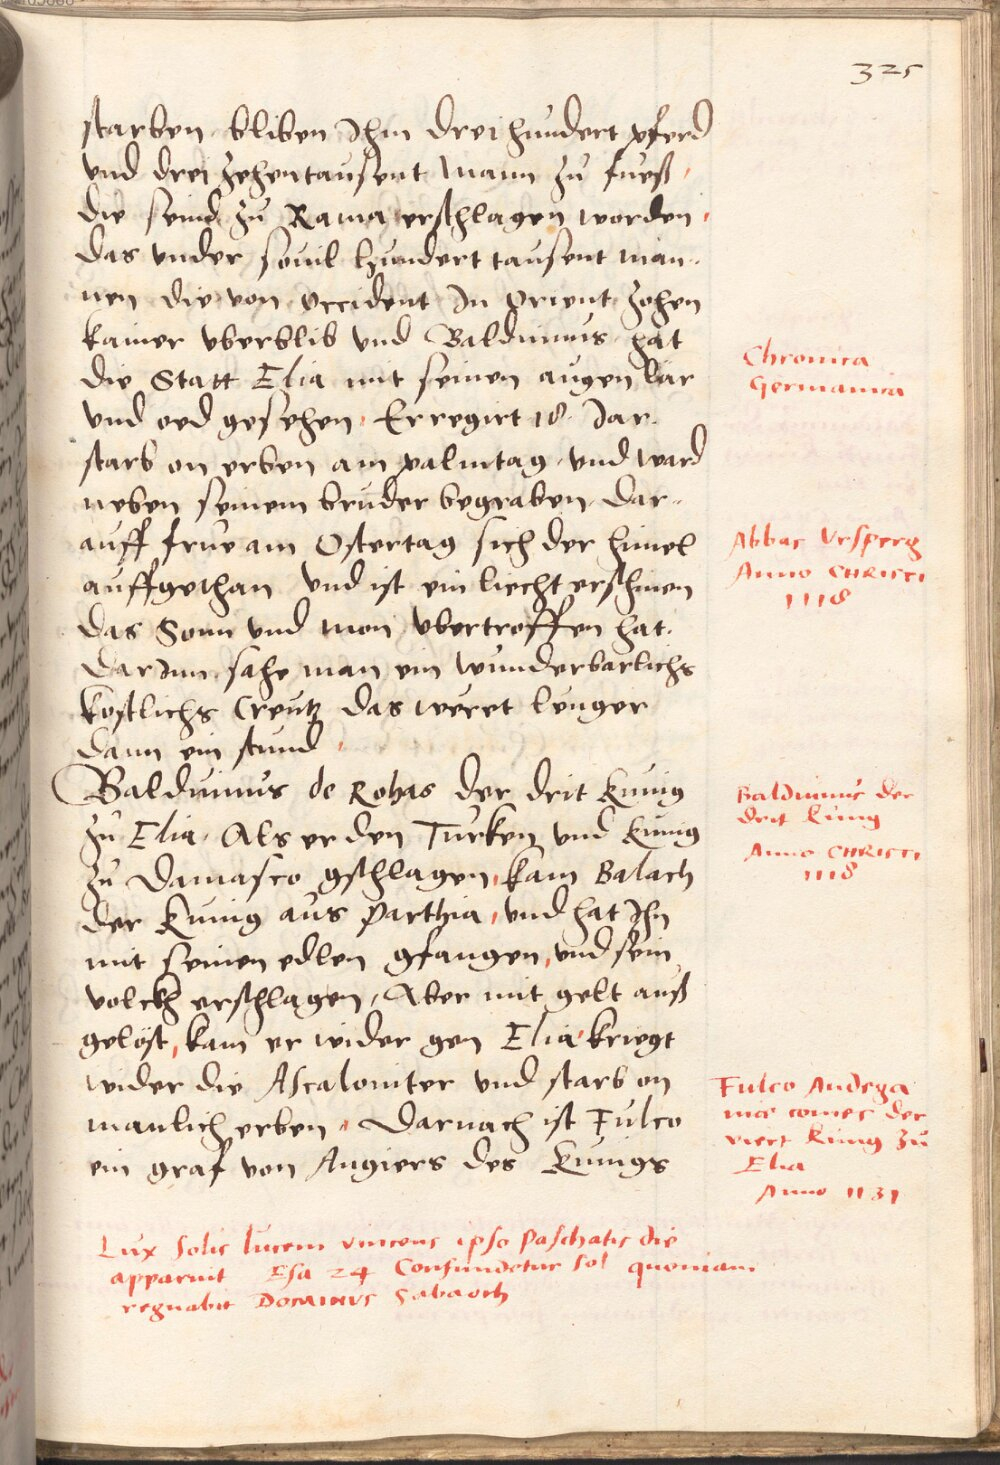 325
starben bliben Ihm dreihundert pferd
vnd drei zehentausent mann zu fueß,
die seind zu Rama erschlagen worden,
das vnder souil hundert tausent män-
nen die von Occident In Orient zohen
kainer vberblib vnd Balduinus hat
die Statt Elia mit seinen augen lär
vnd oed gesehen, Er regirt 18 Jar.
starb on erben am palmtag vnd ward
neben seinem bruder begraben, Dar-
auff frue am Ostertag sich der himel
auffgethan vnd ist ein liecht erschinen
das Sonn vnd mon vbertroffen hat.
darInn sahe man ein wunderbarlichs
kostlichs Creutz das weret lenger
dann ein stund,
Balduinus de Rohas der drit Kunig
zu Elia, Als er den Turken vnd Kunig
zu Damasco gschlagen, kam Balach
der Kunig aus Parthia, vnd hat Ihn
mit seinen edlen gfangen, vnd sein
volckh erschlagen, Aber mit gelt auß
gelöst, kam er wider gen Elia, kriegt
wider die Ascaloniter vnd starb on
manlich erben, Darnach ist Fulco
ein graf von Angiers des Kunigs
Chronica
Germanica
Abbas Vrsperg
Anno CHRISTI
1118
Balduinus der
drit kunig
Anno CHRISTI
1118
Fulco Andega
niae comes der
viert kunig zu
Elia
Anno 1131
Lux solis lucem vincens ipso Paschatis die
apparuit Esa 24 Confundetur sol quoniam
regnabit DOMINVS Sabaoth